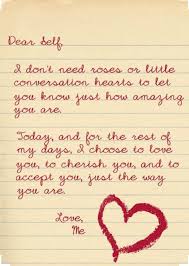 Dear Self,
I don't need roses or little
conversation hearts to let
you know just how amazing
you are.
Today, and for the rest of
my days, I choose to love
you, to cherish you, and to
accept you, just the way
you are.
Love,
Me